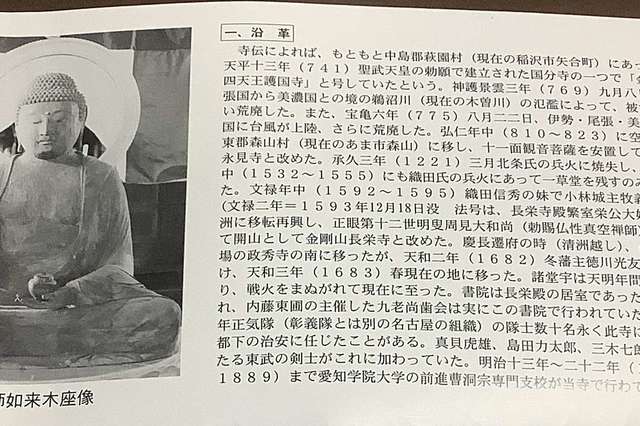 一、沿 革
寺伝によれば、もともと中島郡萩園村（現在の稲沢市矢合町）にあっ
天平十三年（７４１）聖武天皇の勅願で建立された国分寺の一つで「金
四天王護国寺」と号していたという。神護景雲三年（７６９）九月八
張国から美濃国との境の鵜沼川（現在の木曽川）の氾濫によって、被
い荒廃した。また、宝亀六年（７７５）八月二二日、伊勢・尾張・美
国に台風が上陸、さらに荒廃した。弘仁年中（８１０～８２３）に空
東郡森山村（現在のあま市森山）に移し、十一面観音菩薩を安置して
永見寺と改めた。承久三年（１２２１）三月北条氏の兵火に焼失し、
中（１５３２～１５５５）にも織田氏の兵火にあって一草堂を残すのみ
た。文禄年中（１５９２～１５９５）織田信秀の妹で小林城主牧義
(文禄二年＝１５９３年12月18日没　法号は、長栄寺殿繁室栄公大姉
洲に移転再興し、正眼第十二世明叟周見大和尚（勅賜仏性真空禅師）
て開山として金剛山長栄寺と改めた。慶長遷府の時（清洲越し）、
場の政秀寺の南に移ったが、天和二年（１６８２）冬藩主徳川光友
け、天和三年（１６８３）春現在の地に移った。諸堂宇は天明年間
り、戦火をまぬがれて現在に至った。書院は長栄殿の居室であった
れ、内藤東甫の主催した九老尚歯会は実にこの書院で行われていた
年正気隊（彰義隊とは別の名古屋の組織）の隊士数十名永く此寺に
都下の治安に任じたことがある。真貝虎雄、島田力太郎、三木七郎
たる東武の剣士がこれに加わっていた。明治十三年～二十二年（１
１８８９）まで愛知学院大学の前進曹洞宗専門支校が当寺で行わて
師如来木座像